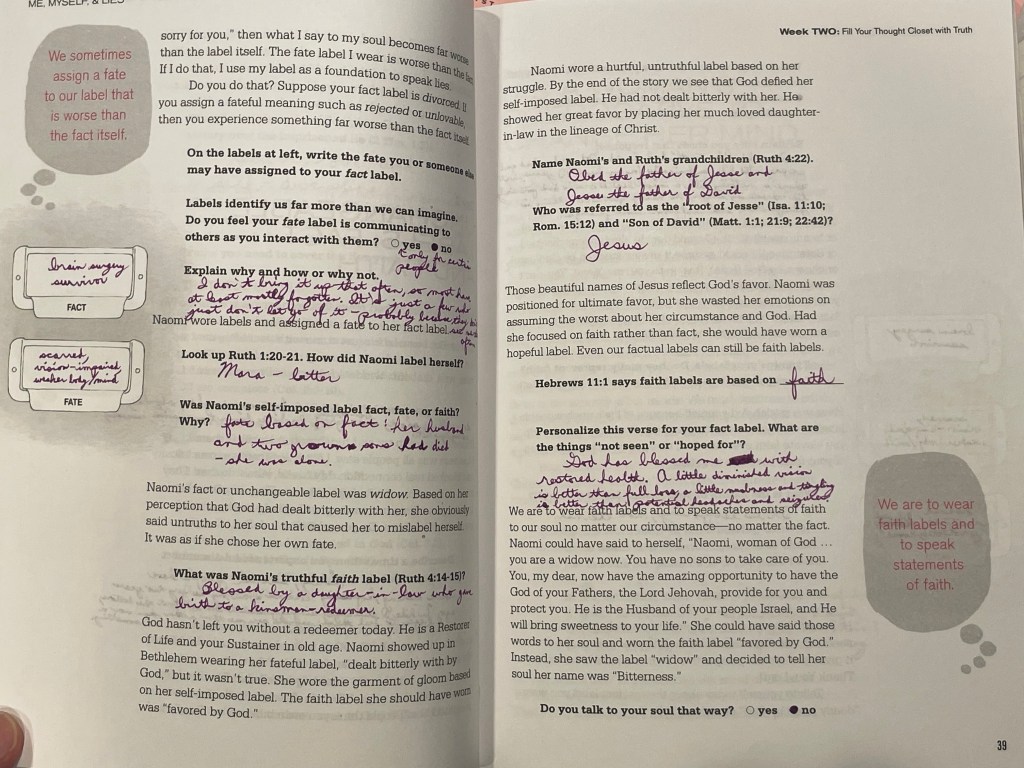 ME, MYSELF, & LIES
We sometimes
assign a fate
to our label that
is worse than
the fact itself.
sorry for you," then what I say to my soul becomes far worse
than the label itself. The fate label I wear is worse than the
If I do that, I use my label as a foundation to speak lies.
Do you do that? Suppose your fact label is divorced. If
you assign a fateful meaning such as rejected or unlovable,
then you experience something far worse than the fact itself.
On the labels at left, write the fate you or someone else
may have assigned to your fact label.
Labels identify us far more than we can imagine.
Do you feel your fate label is communicating to
others as you interact with them? yes no
only for certain
people
Explain why and how or why not.
I don't bring it up that often, so most have
at least mostly forgotten. It's just a few who
just don't let go of it – probably because they
see me
often
brain surgery
survivor
FACT
scarred,
vision-impaired
weaker body/mind
FATE
Naomi wore labels and assigned a fate to her fact label.
Look up Ruth 1:20-21. How did Naomi label herself?
Mara – bitter
Was Naomi's self-imposed label fact, fate, or faith?
Why? fate based on fact: her husband
and two grown sons had died
– she was alone.
Naomi's fact or unchangeable label was widow. Based on her
perception that God had dealt bitterly with her, she obviously
said untruths to her soul that caused her to mislabel herself.
It was as if she chose her own fate.
What was Naomi's truthful faith label (Ruth 4:14-15)?
Blessed by a daughter-in-law who gave
birth to a kinsman-redeemer.
God hasn't left you without a redeemer today. He is a Restorer
of Life and your Sustainer in old age. Naomi showed up in
Bethlehem wearing her fateful label, "dealt bitterly with by
God," but it wasn't true. She wore the garment of gloom based
on her self-imposed label. The faith label she should have worn
was "favored by God."
Week TWO: Fill Your Thought Closet with Truth
Naomi wore a hurtful, untruthful label based on her
struggle. By the end of the story we see that God defied her
self-imposed label. He had not dealt bitterly with her. He
showed her great favor by placing her much loved daughter-
in-law in the lineage of Christ.
Name Naomi's and Ruth's grandchildren (Ruth 4:22).
Obed the father of Jesse and
Jesse the father of David
Who was referred to as the "root of Jesse" (Isa. 11:10;
Rom. 15:12) and "Son of David" (Matt. 1:1; 21:9; 22:42)?
Jesus
Those beautiful names of Jesus reflect God's favor. Naomi was
positioned for ultimate favor, but she wasted her emotions on
assuming the worst about her circumstance and God. Had
she focused on faith rather than fact, she would have worn a
hopeful label. Even our factual labels can still be faith labels.
Hebrews 11:1 says faith labels are based on faith
Personalize this verse for your fact label. What are
the things "not seen" or "hoped for"?
God has blessed me with
restored health. A little diminished vision
is better than full loss, a little numbness and tingling
is better than potential headaches and seizures.
We are to wear faith labels and to speak statements of faith
to our soul no matter our circumstance—no matter the fact.
Naomi could have said to herself, "Naomi, woman of God ...
you are a widow now. You have no sons to take care of you.
You, my dear, now have the amazing opportunity to have the
God of your Fathers, the Lord Jehovah, provide for you and
protect you. He is the Husband of your people Israel, and He
will bring sweetness to your life." She could have said those
words to her soul and worn the faith label "favored by God."
Instead, she saw the label "widow" and decided to tell her
soul her name was "Bitterness."
We are to wear
faith labels and
to speak
statements
of faith.
Do you talk to your soul that way? yes no
39